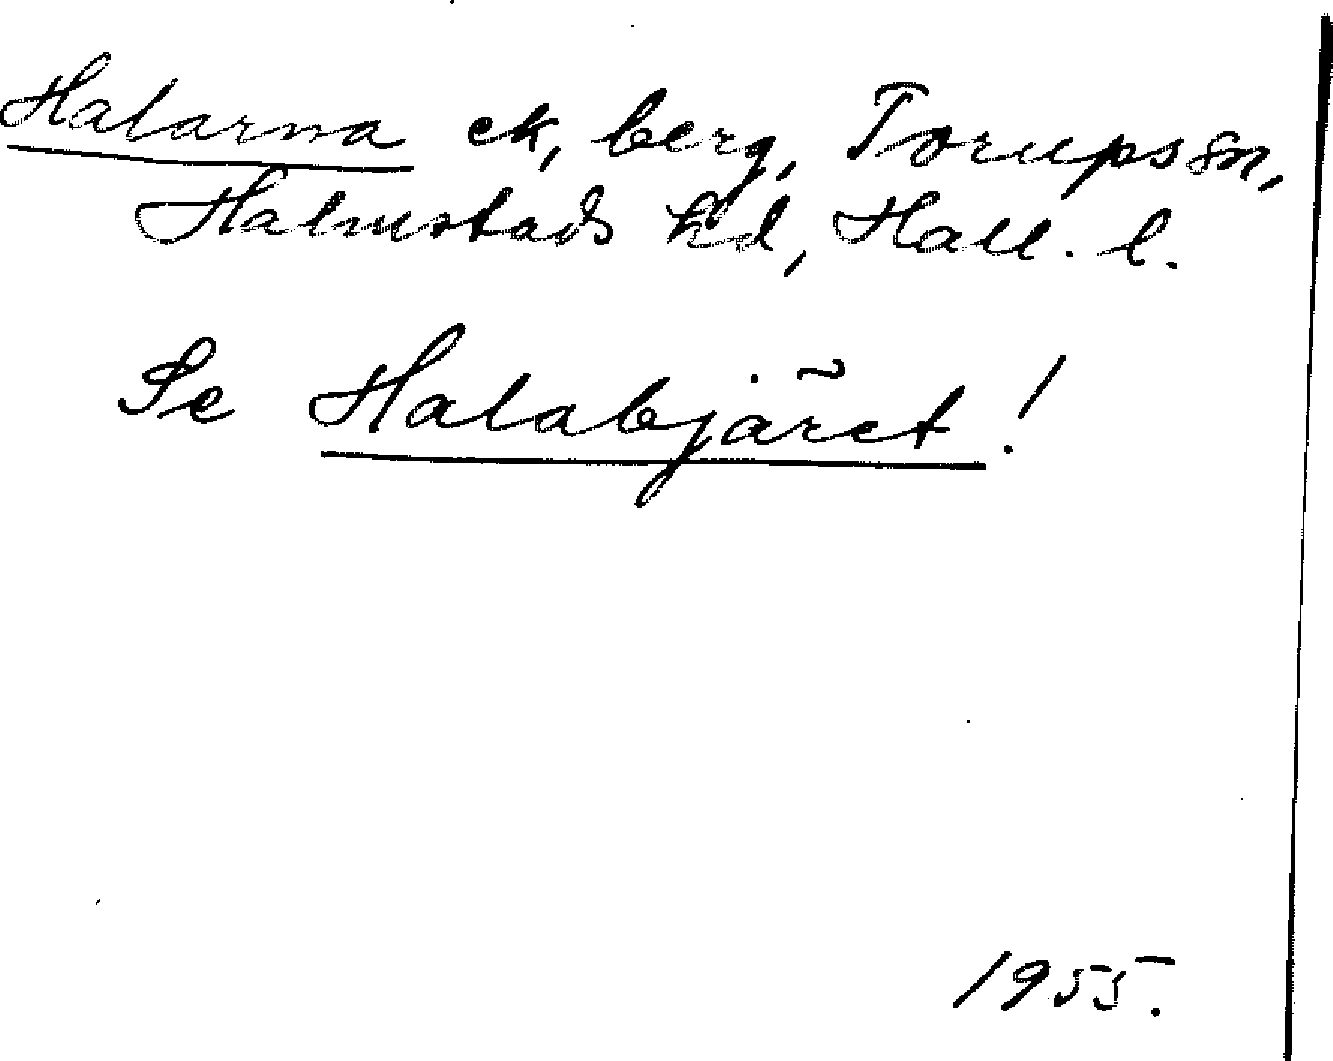 Halarna ek, berg, Torups sn,
Halmstads hd, Hall. l.
Se Halabjäret!
1955.